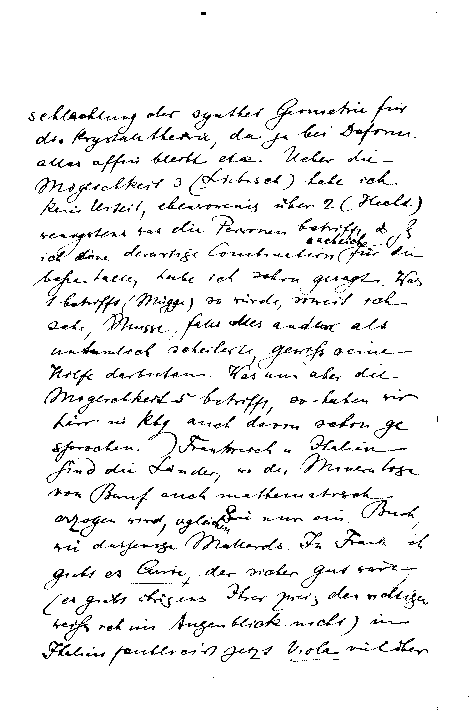 schlachtung der synthet Geometrie für
die Krystalltheorie, da ja bei Deform.
alles affin bleibt etc. Ueber die
Möglichkeit 3 (Liebisch) habe ich
kein Urteil, ebensowenig über 2 (Hecht)
wenigstens was die Personen betrifft,
ich derartige Construction für die
habe ich schon gesagt. Was
1 betrifft, (Mügge) so würde, soweit ich
sehe, Mügge, falls alles andere als
untunlich scheitert, gewiss seine
Hülfe darbieten. Was nun aber die
Möglichkeit 5 betrifft, so haben wir
hier in Kbg auch davon schon ge
sprochen. Frankreich u Italien
sind die Länder, wo der Mineraloge
von Beruf auch mathematisch
erzogen wird, nur ein Buch,
wie dasjenige Mallards. In Frank ch
giebt es Curie, der sicher gut wäre
(es giebt übrigens den richtigen
weiss ich im Augenblick nicht) in
Italien jetzt Viola viel über